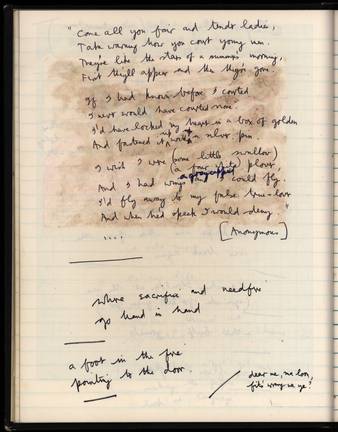 "Come all you fair and tender ladies,
Take warning how you court young men.
They're like the stars of a summer's morning,
First they'll appear and then they're gone.
If I had known before I courted
I never would have courted none.
I'd have locked my heart in a box of golden
And fastened it up with a silver pin.
I wish I were (some little swallow)
(a tiny little) plover,
And I had wings could fly.
I'd fly away to my false true-lover
And when he'd speak I would deny."
....
[Anonymous]
where sacrifice and needfire
go hand in hand
a foot in the fire
pointing to the door.
dear me, me
wrong